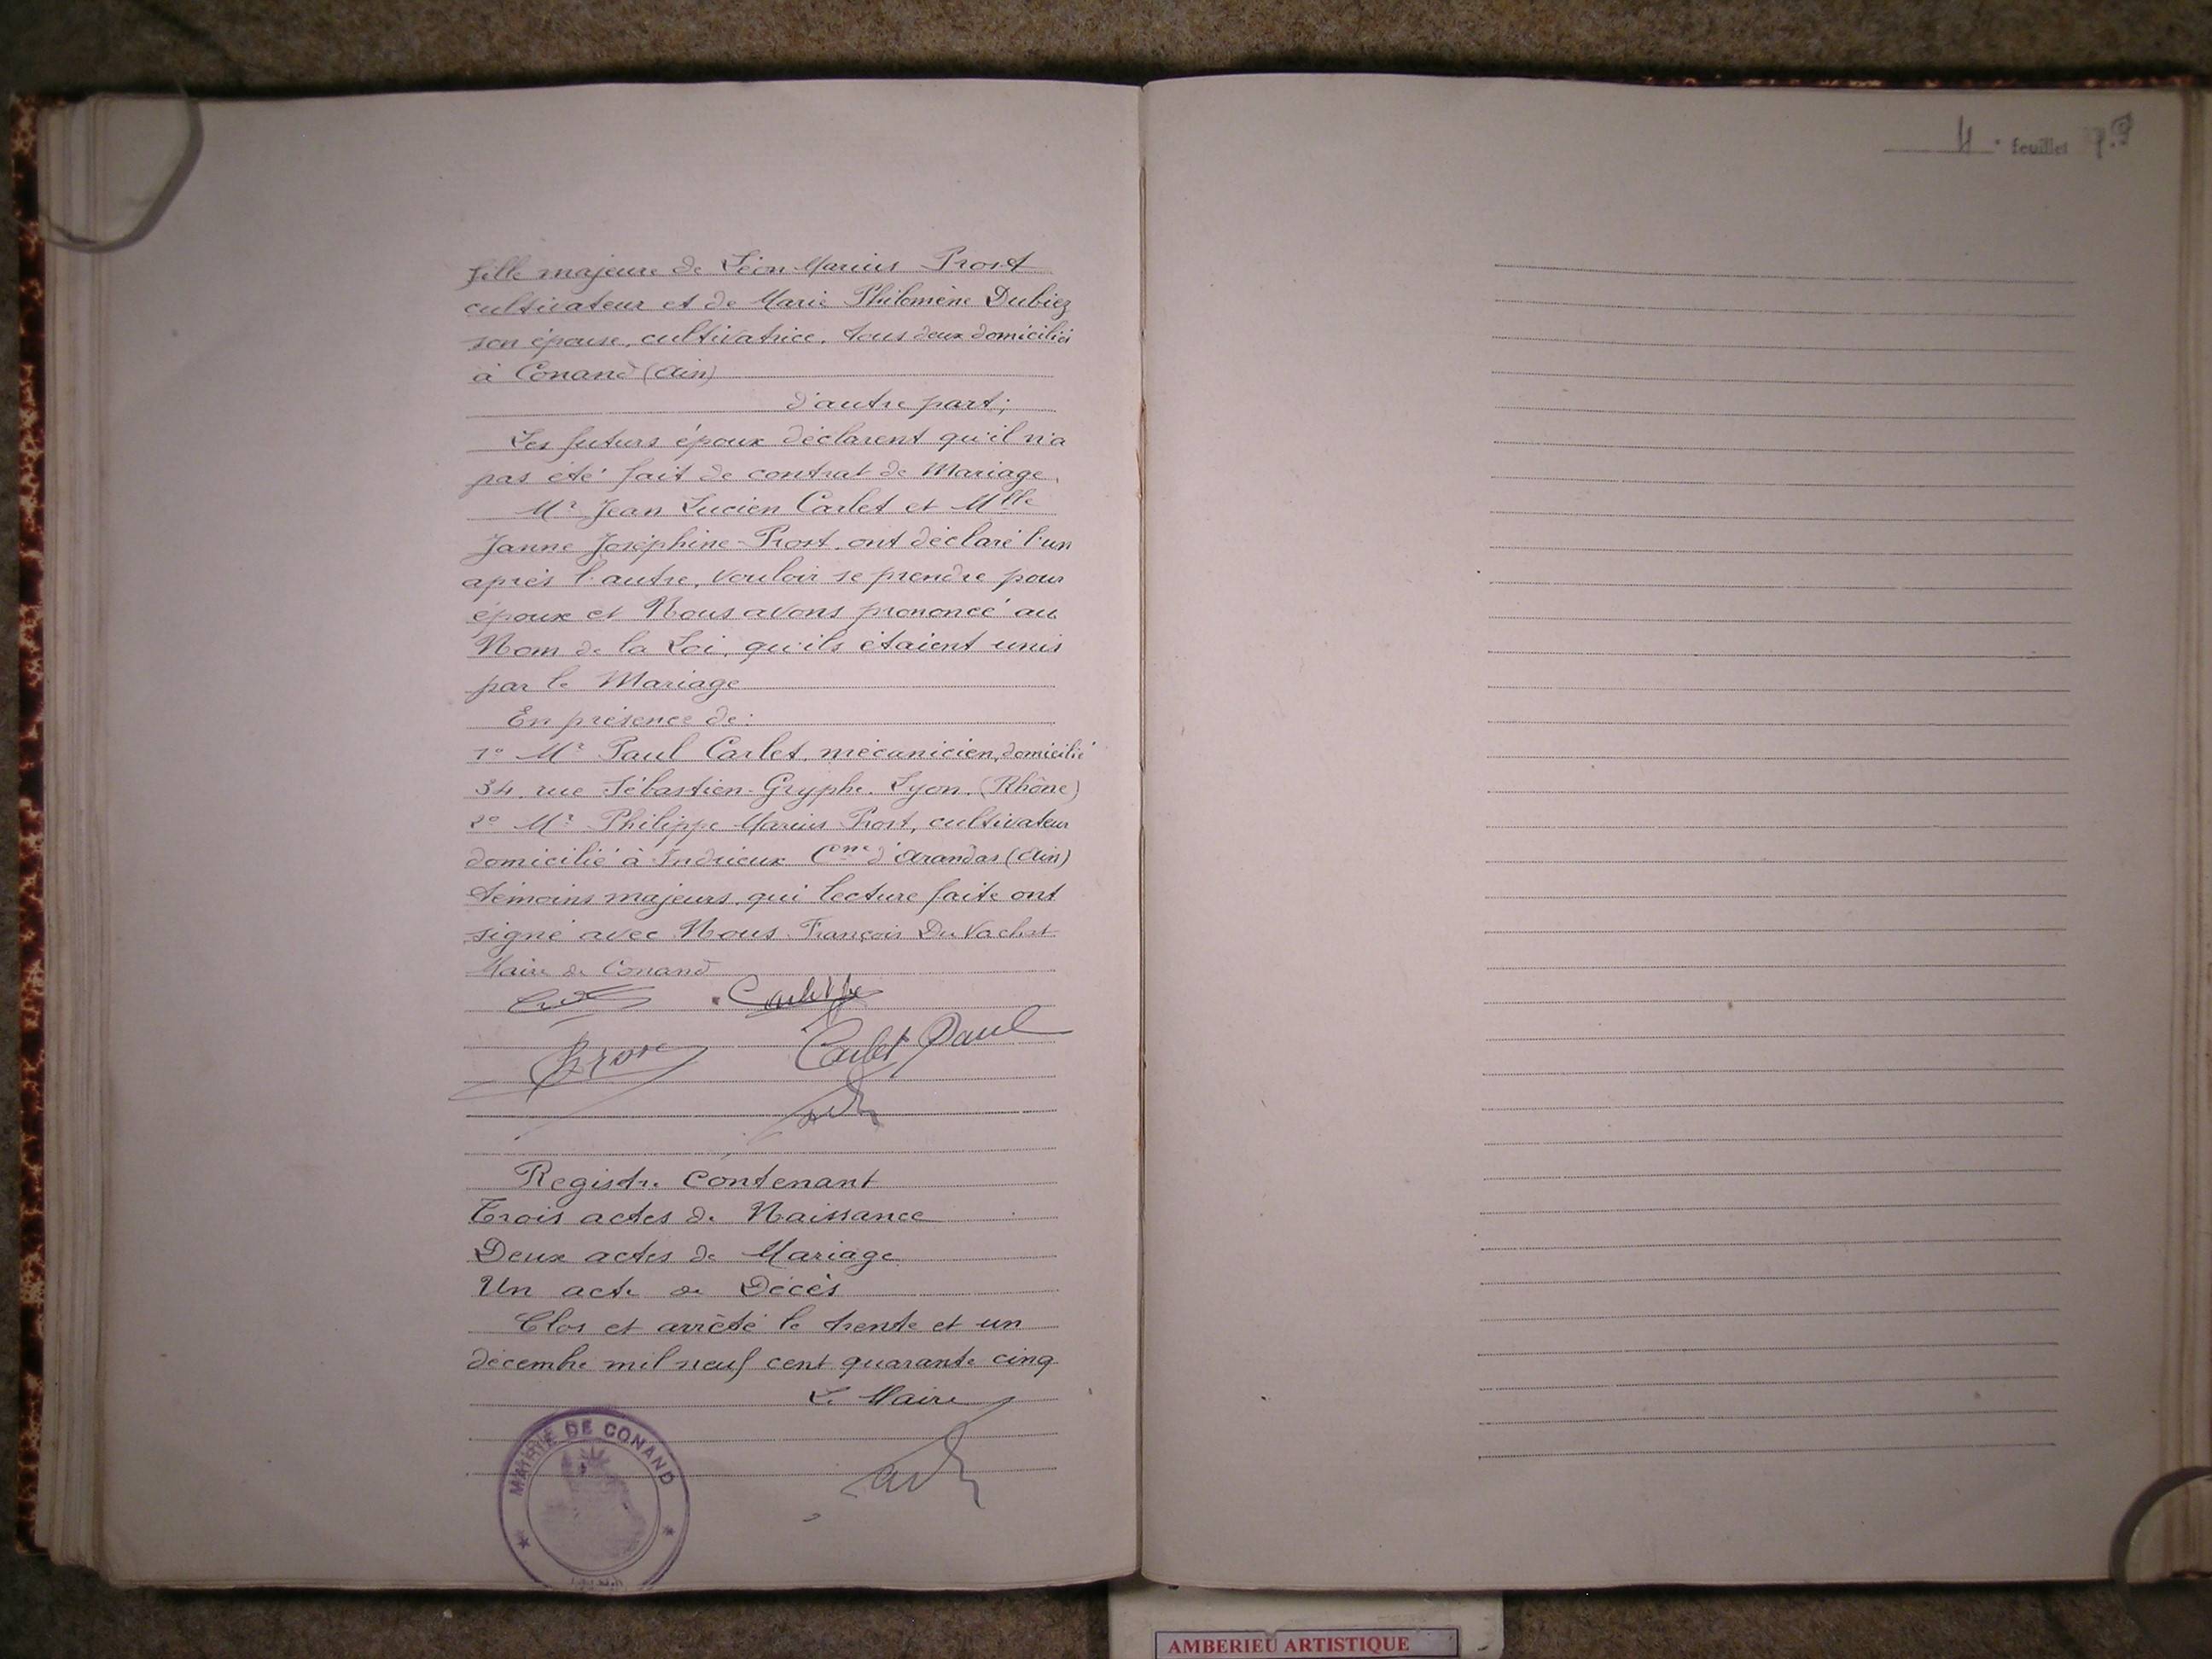 4e feuillet
fille majeure de Léon Marius Prost
cultivateur et de Marie Philomène Dubiez
son épouse, cultivatrice, tous deux domiciliés
à Conand (Ain)
d'autre part;
Les futurs époux déclarent qu'il n'a
pas été fait de contrat de Mariage.
Mr Jean Lucien Carlet et Mlle
Janne Joséphine Prost, ont déclaré l'un
après l'autre, vouloir se prendre pour
époux et Nous avons prononcé au
Nom de la Loi, qu'ils étaient unis
par le Mariage
En présence de:
1° Mr Paul Carlet, mécanicien, domicilié
34, rue Sébastien-Gryphe, Lyon. (Rhône)
2° Mr Philippe Marius Prost, cultivateur
domicilié à Indrieux Cne d'Arandas (Ain)
témoins majeurs, qui lecture faite ont
signé avec Nous François Du Vachat
Maire de Conand
Carlet Paul
Registre Contenant
Trois actes de Naissance
Deux actes de Mariage
Un acte de Décès
Clos et arrêté le trente et un
décembre mil neuf cent quarante cinq
Le Maire
MAIRIE DE CONAND
AMBERIEU ARTISTIQUE